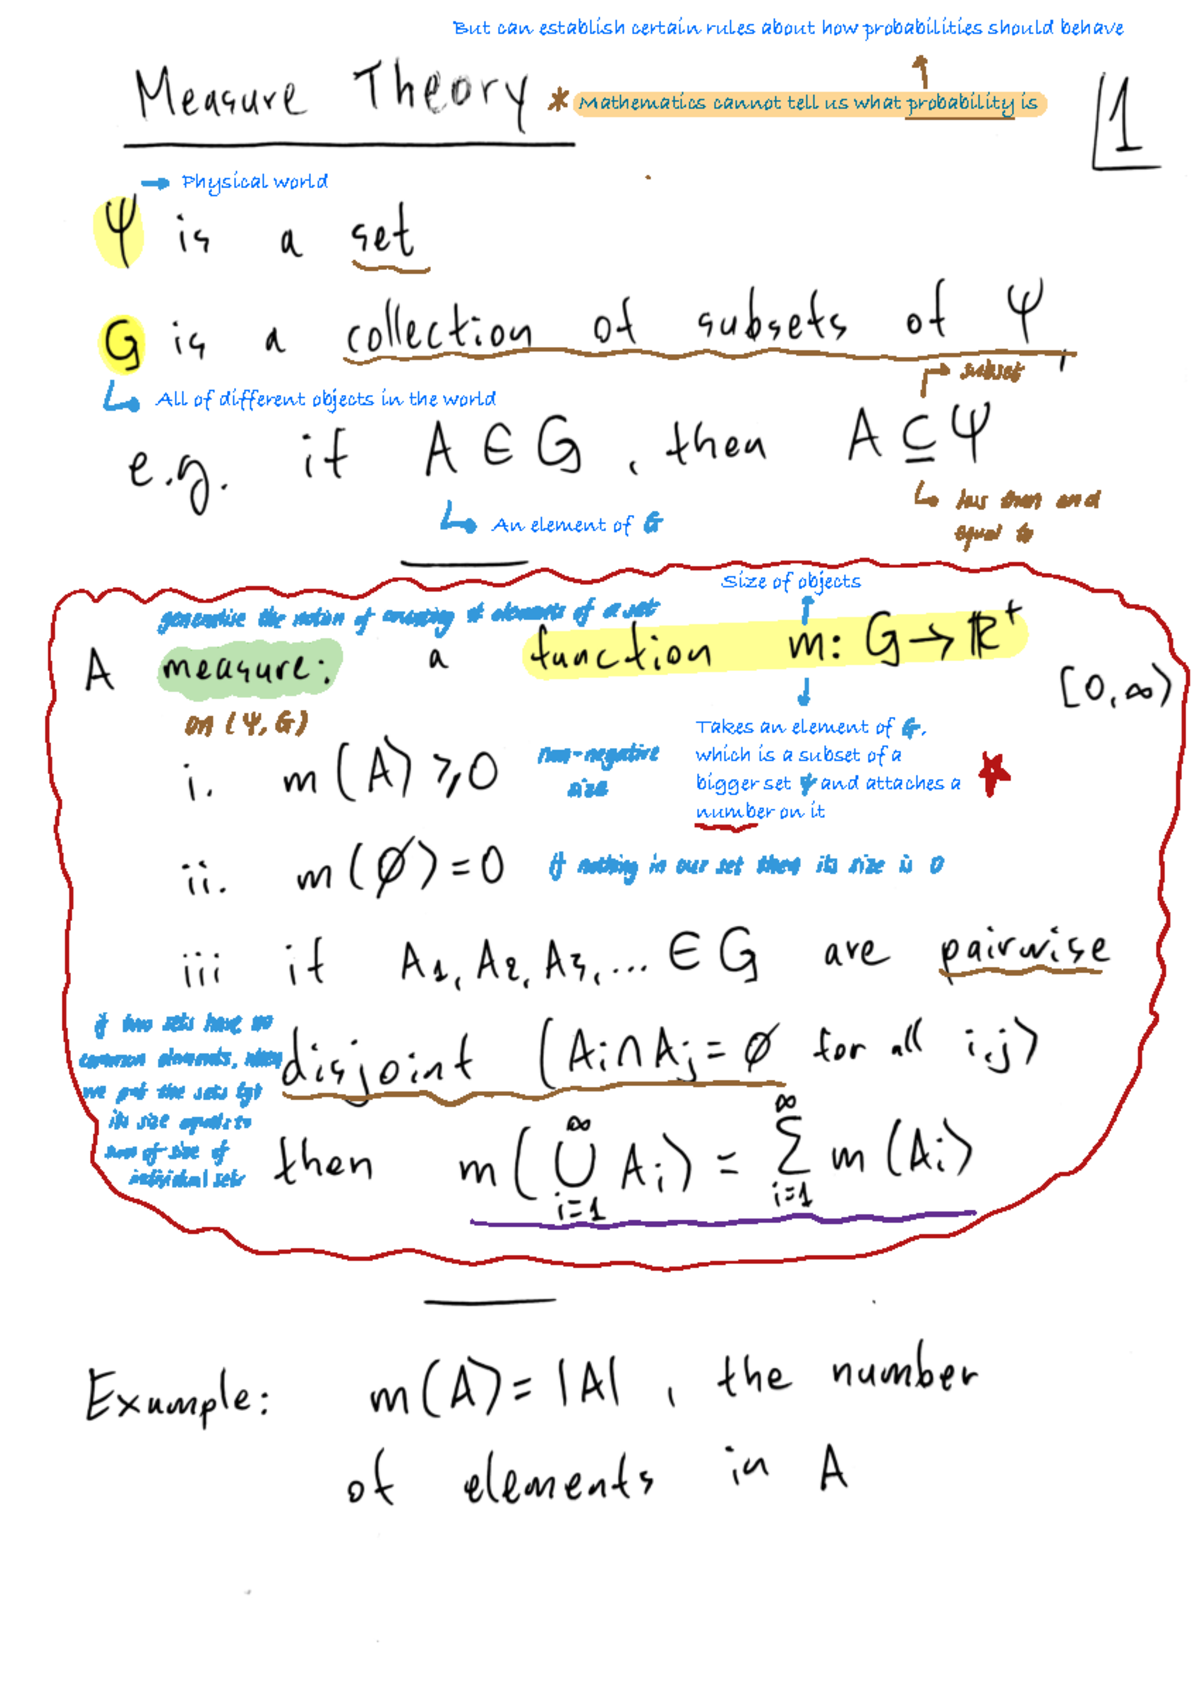 But can establish certain rules about how probabilities should behave
Measure Theory * Mathematics cannot tell us what probability is
1
→ Physical world
Ψ is a set
G is a collection of subsets of Ψ,
→ subset
All of different objects in the world
e.g. if A ∈ G, then A ⊆ Ψ
less than and
equal to
An element of G
Size of objects
generalise the notion of counting # elements of a set
A measure: a function m: G → ℝ⁺
[0, ∞)
on (Ψ, G)
Takes an element of G,
which is a subset of a
bigger set Ψ and attaches a
number on it
i. m(A) ≥ 0
non-negative
size
ii. m(∅) = 0 if nothing in our set then its size is 0
iii if A₁, A₂, A₃, ... ∈ G are pairwise
disjoint (Aᵢ ∩ Aⱼ = ∅ for all i, j)
then m(⋃_{i=1}^{∞} Aᵢ) = ∑_{i=1}^{∞} m(Aᵢ)
if two sets have no
common elements, when
we put the sets tgt
its size equals to
sum of size of
individual sets
Example: m(A) = |A|, the number
of elements in A